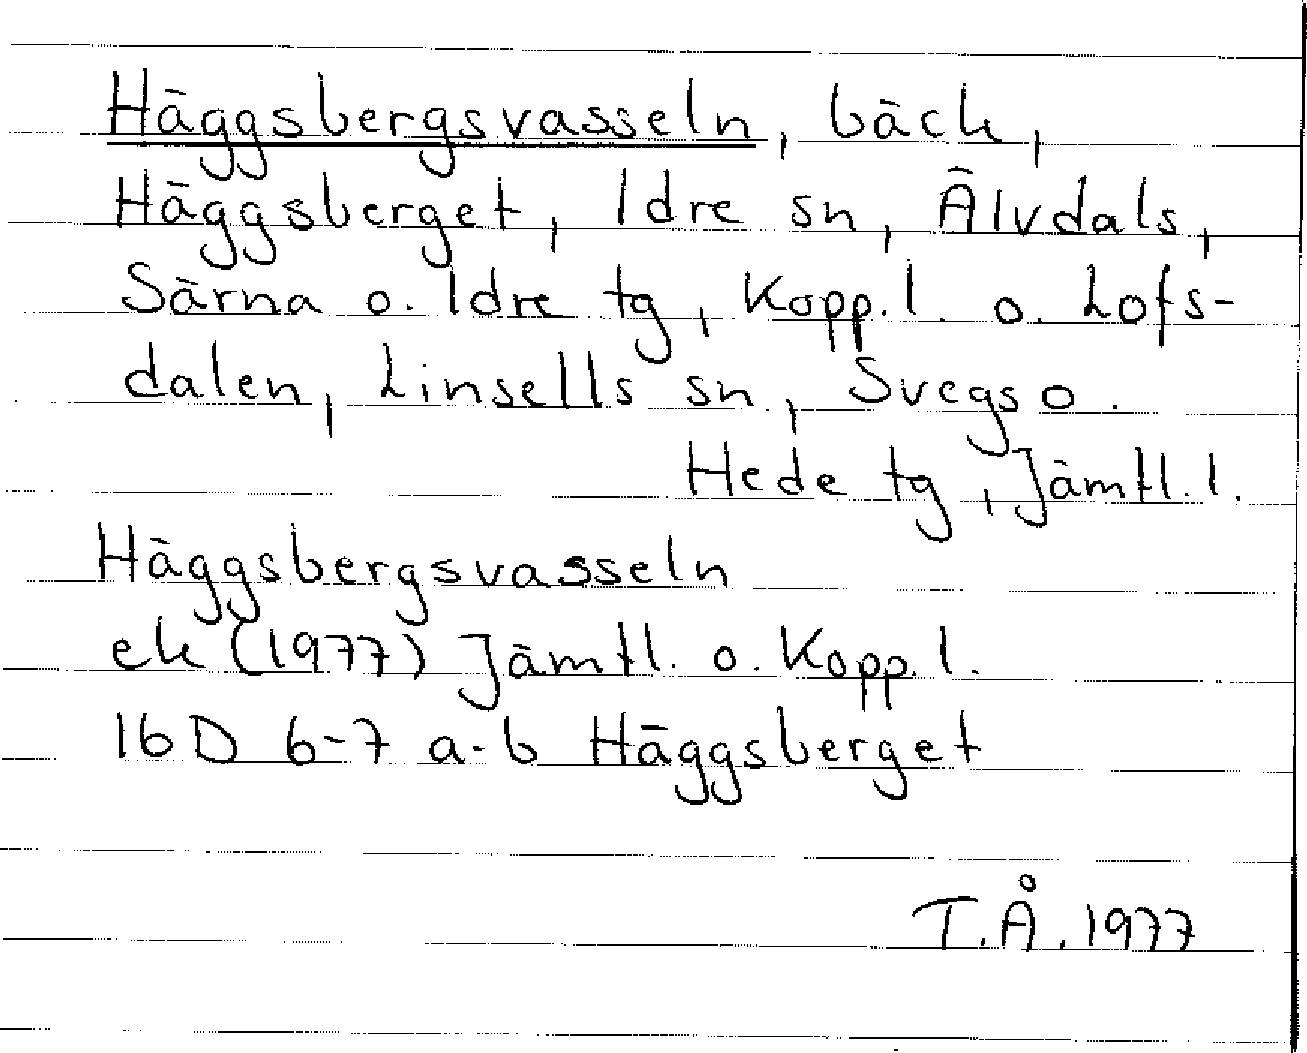 Häggsbergsvasseln, bäck,
Häggsberget, Idre sn, Älvdals,
Särna o. Idre tg, Kopp. l. o. Lofs-
dalen, Linsells sn, Svegs o.
Hede tg, Jämtl. l.
Häggsbergsvasseln
ek (1977) Jämtl. o. Kopp. l.
16 D 6-7 a-b Häggsberget
T.Å. 1977